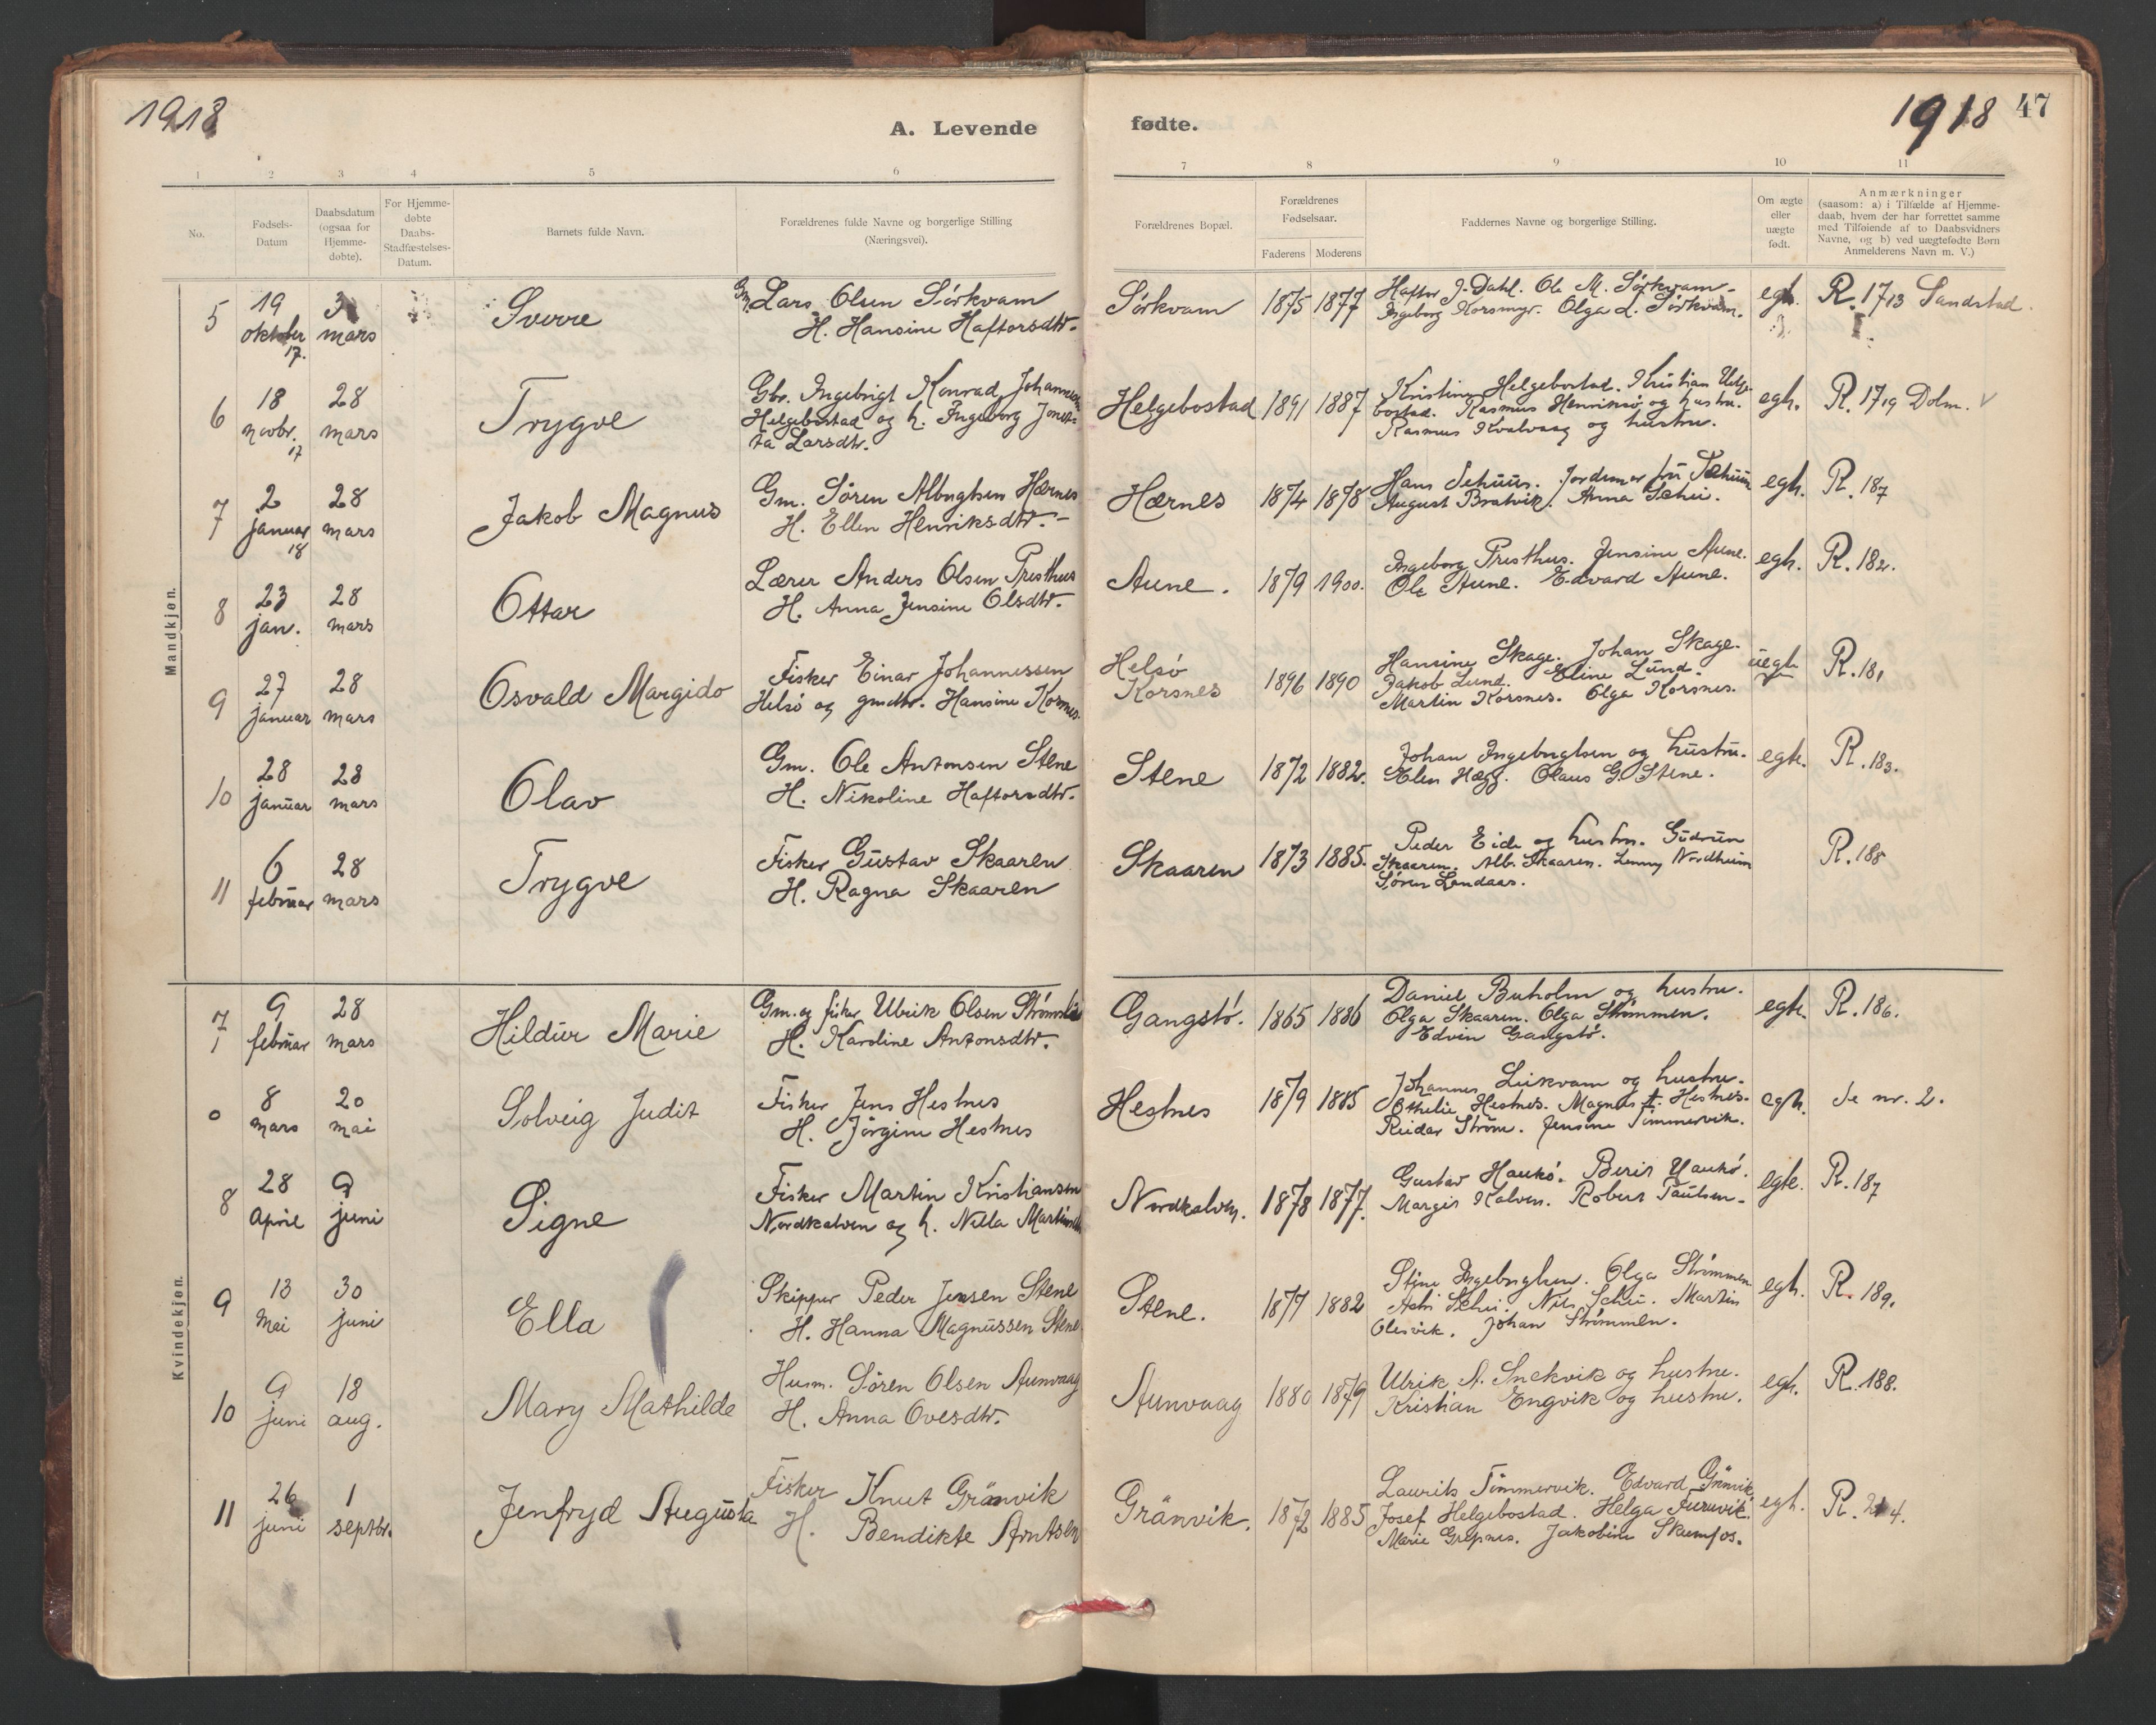 1918
A. Levende
fødte.
1918 47
1 2 3 4 5 6
7 8 9 10 11
No.
Fødsels-
Datum
Daabsdatum
(ogsaa for
Hjemme-
døbte).
For Hjemme-
døbte
Daabs-
Stadfæstelses-
Datum.
Barnets fulde Navn.
Forældrenes fulde Navne og borgerlige Stilling
(Næringsvei).
Forældrenes Bopæl.
Forældrenes
Fødselsaar.
Faderens Moderens
Faddernes Navne og borgerlige Stilling.
Om ægte
eller
uægte
født.
Anmærkninger
(saasom: a) i Tilfælde af Hjemme-
daab, hvem der har forrettet samme
med Tilføiende af to Daabsvidners
Navne, og b) ved uægtefødte Børn
Anmelderens Navn m. V.)
Mandkjøn.
5
19
oktober
17.
3
mars
Sverre
Gm. Lars Olsen Sörkvam
H. Hansine Haftorsdtr.
Sörkvam
1875 1877
Haftor J. Dahl. Ole M. Sörkvam.
Ingeborg Korsmyr. Olga L. Sörkvam.
egte.
R. 17 13 Sandstad.
6
18
novbr.
17
28
mars
Trygve
Gbr. Ingebrigt Konrad Johannesen
Helgebostad og h. Ingeborg Jonet-
ta Larsdtr.
Helgebostad
1891 1887
Kristine Helgebostad. Kristian Helge-
bostad. Rasmus Henriksö og hustru.
Rasmus Kvalvaag og hustru.
egte.
R. 17 19 Dolm. V
7
2
januar
18
28
mars
Jakob Magnus
Gm. Sören Albrigtsen Hærnes
H. Ellen Henriksdtr.
Hærnes
1874 1878
Hans Schüür. Jordmor fru
August Bratvik. Anna
egte.
R. 18 7
8
23
jan.
28
mars
Ottar
Lærer Anders Olsen Presthus
H. Anna Jensine Olsdtr.
Aune.
1879 1900.
Ingeborg Presthus. Jensine Aune.
Ole Aune. Edvard Aune.
egte.
R. 18 2.
9
27
januar
28
mars
Osvald Margido
Fisker Einar Johannessen
Helsö og gmdtr. Hansine Korsnes.
Helsö
Korsnes
1896 1890
Hansine Skage. Johan Skage.
Jakob Lund. Eline Lund.
Martin Korsnes. Olga Korsnes.
uegte
R. 18 1
10
28
januar
28
mars
Olav
Gm. Ole Antonsen Stene
H. Nikoline Haftorsdtr.
Stene
1872 1882.
Johan Ingebrigtsen og hustru.
Elen Hægg. Olaus G. Stene.
egte.
R. 18 3.
11
6
februar
28
mars
Trygve
Fisker Gustav Skaaren
H. Ragna Skaaren
Skaaren
1873 1885.
Peder Eide og hustru. Gudrun
Skaaren. Alb. Skaaren. Lenny Nordheim
Sören Landaas.
R. 18 8
Kvindekjøn.
7
9
februar
28
mars
Hildur Marie
Gm. og fisker Ulrik Olsen
H. Karoline Antonsdtr.
Gangstö.
1865 1886
Daniel Buholm og hustru.
Olga Skaaren. Olga Strömmen.
Edvin Gangstö.
egte.
R. 18 6.
0
8
mars
20
mai
Solveig Judit
Fisker Jens Hestnes
H. Jörgine Hestnes
Hestnes
1879 1885
Johannes Leikvam og hustru.
Othelie Hestnes. Magnus A. Hestnes.
Reidar Ström. Jensine Timmervik.
egte.
Se nr. 2.
8
28
April
9
juni
Signe
Fisker Martin Kristiansen
Nordkalven og h. Nilla
Nordkalven.
1878 1877.
Gustav Haukö. Berit Haukö.
Margit Kalven. Robert Paulsen.
egte.
R. 18 7
9
13
Mai
30
juni
Ella
Skipper Peder Jensen Stene
H. Hanna Magnussen Stene
Stene.
1877 1882
Stine Ingebrigtsen. Olga Strömmen
Schei. Nils Schei. Martin
Olesvik. Johan Strömmen.
egte.
R. 18 9.
10
9
juni
18
aug.
Mary Mathilde
Husm. Sören Olsen Aunvaag
H. Anna Ovesdtr.
Aunvaag
1880 1879
Ulrik A. Snekvik og hustru.
Kristian Engvik og hustru.
egte.
R. 18 8.
11
26
juni
1
septbr.
Jenfryd Augusta
Fisker Knut Gränvik
H. Bendikte Arntsen
Gränvik.
1872 1885
Laurits Timmervik. Edvard Gränvik
Josef Helgebostad. Helga
Marie Grepnes. Jakobine Skumfos.
egte.
R. 4.